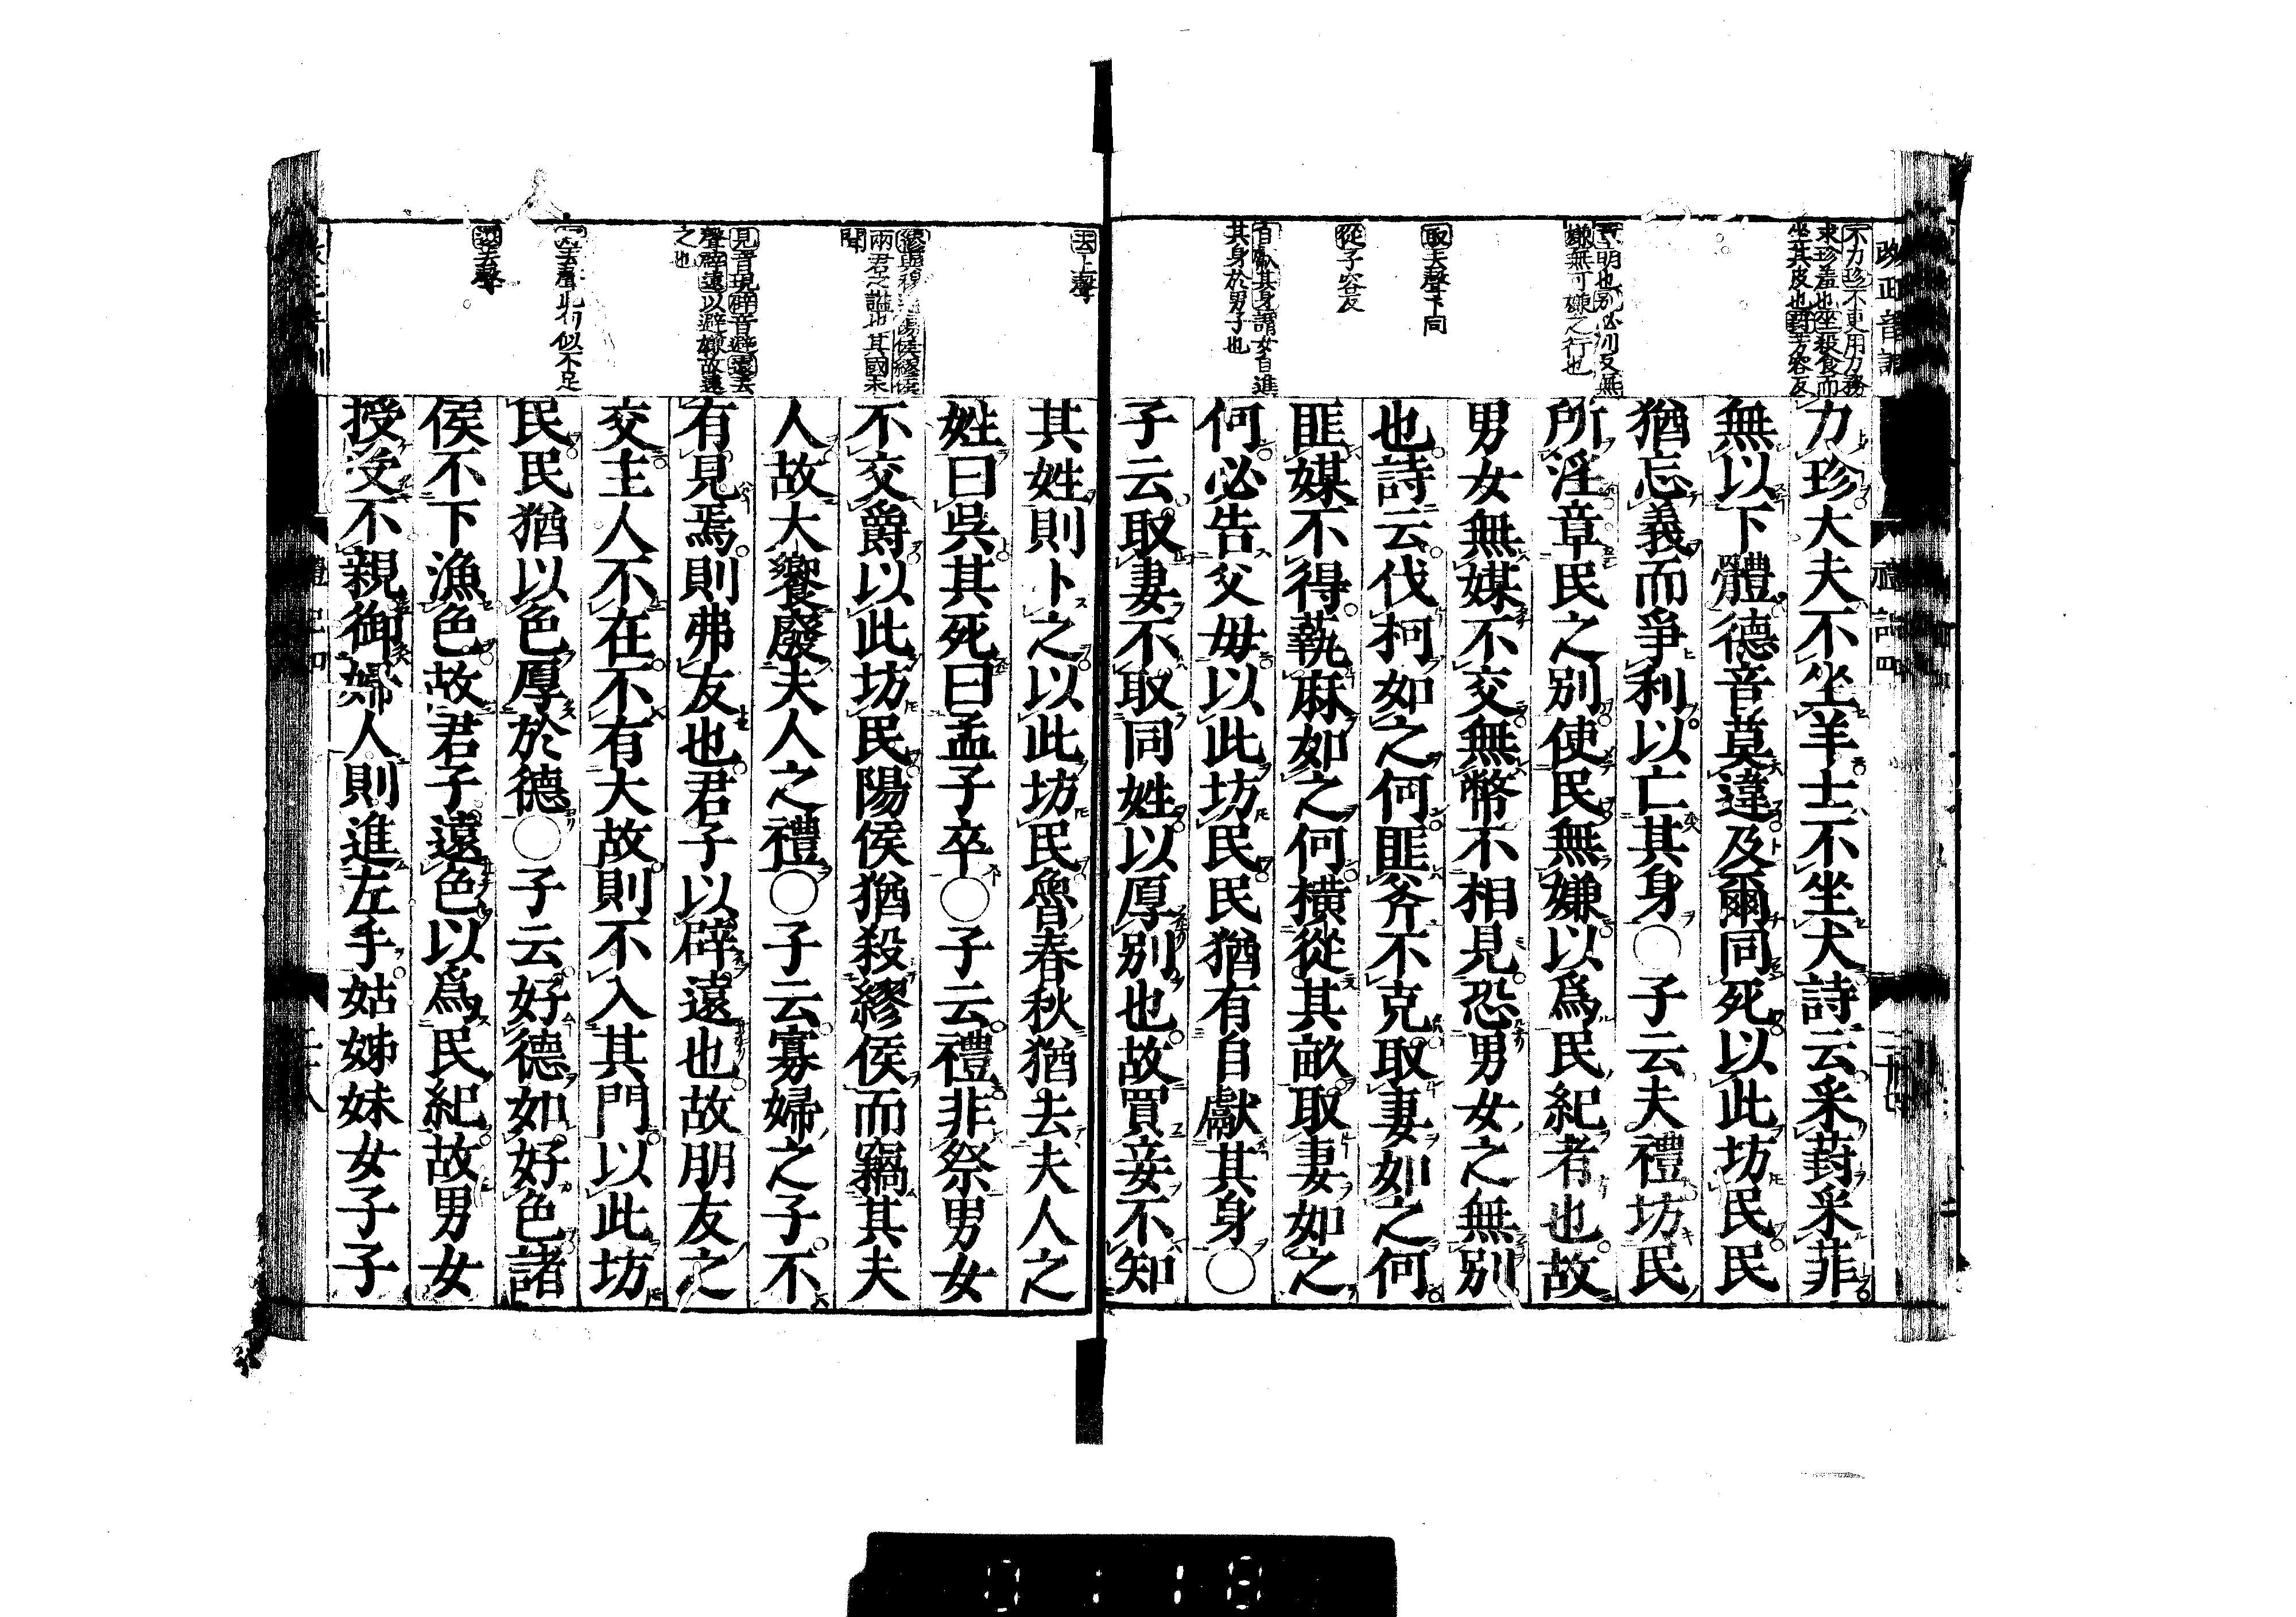 改正音訓
禮記四
二十七
不力珍不更用力務
求珍羞也坐殺食而
坐其皮也葑芳容反
章明也別必列反無
嫌無可嫌之行也
取去聲下同
從子容反
自獻其身謂女自進
其身於男子也
力珍大夫不坐羊士不坐犬詩云采葑采菲
無以下體德音莫違及爾同死以此坊民民
猶忘義而爭利以亡其身○子云夫禮坊民
所淫章民之別使民無嫌以爲民紀者也故
男女無媒不交無幣不相見恐男女之無別
也詩云伐柯如之何匪斧不克取妻如之何
匪媒不得蓺麻如之何橫從其畝取妻如之
何必告父母以此坊民民猶有自獻其身○
子云取妻不取同姓以厚別也故買妾不知
去上聲
兩君之謚也其國未
聞
見音現辟音避遠去
聲辟遠以避嫌故遠
之也
去聲此句似不足
遠去聲
其姓則卜之以此坊民魯春秋猶去夫人之
姓曰吳其死曰孟子卒○子云禮非祭男女
不交爵以此坊民陽侯猶殺繆侯而竊其夫
人故大饗廢夫人之禮○子云寡婦之子不
有見焉則弗友也君子以辟遠也故朋友之
交主人不在不有大故則不入其門以此坊
民民猶以色厚於德○子云好德如好色諸
侯不下漁色故君子遠色以爲民紀故男女
授受不親御婦人則進左手姑姊妹女子子
0:18